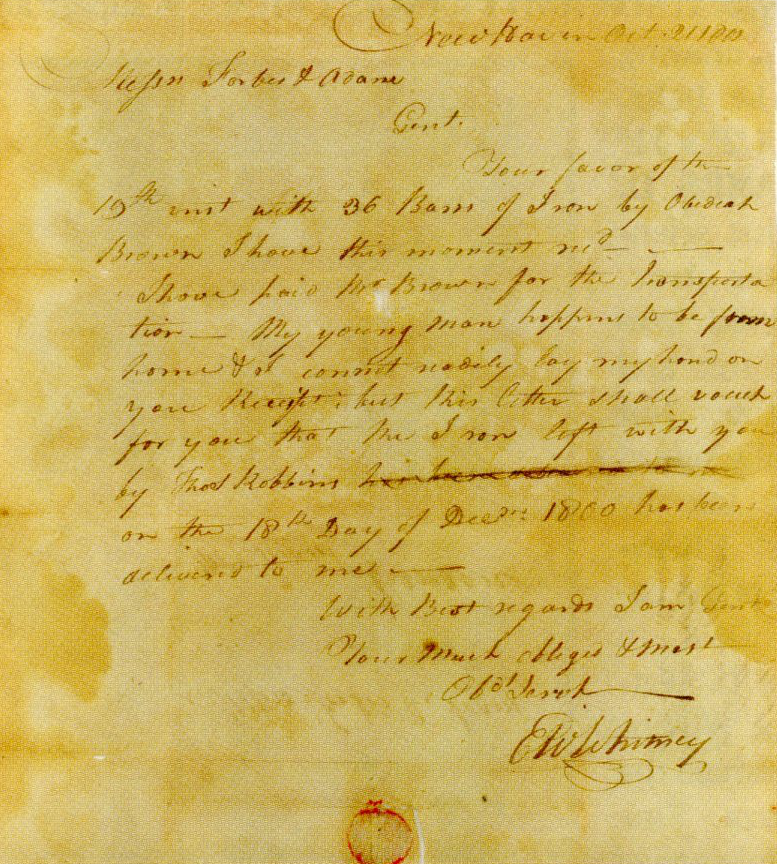 New Haven Oct. 21 180
Messrs Forbes & Adam
Gent.
Your favor of the
19th inst with 36 Bars of Iron by Obediah
Brown I have this moment recd —
I have paid Mr Brown for the transporta
tion — My young man happens to be from
home & I cannot readily lay my hand on
your Receipt; but this letter shall vouch
for you that the Iron left with you
by Thos Robbins
on the 18th Day of Decmr 1800 has been
delivered to me —
With Best regards I am Gent
Your Much obliged & Most
Obdt Servt
E Whitney